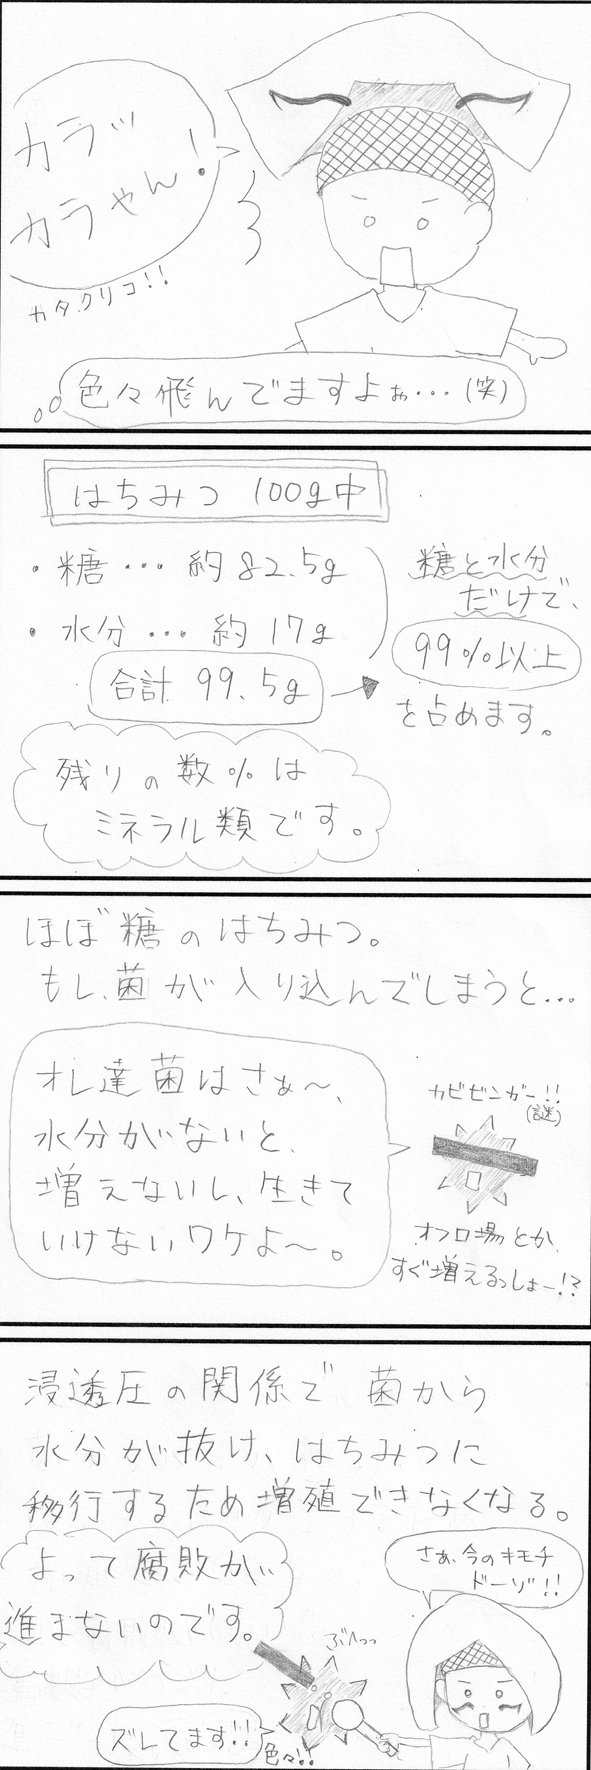 カラッ
カラやん!
カタクリコ!!
色々飛んでますよぉ…(笑)
はちみつ 100g中
・糖… 約82.5g
・水分… 約17g
合計 99.5g
糖と水分
だけで、
99%以上
を占めます。
残りの数%は
ミネラル類です。
ほぼ糖のはちみつ。
もし、菌が入り込んでしまうと…
オレ達菌はさぁ〜、
水分がないと、
増えないし、生きて
いけないワケよ〜。
カビゼンガー!!
(謎)
オフロ場とか、
すぐ増えるっしょー!?
浸透圧の関係で菌から
水分が抜け、はちみつに
移行するため増殖できなくなる。
よって腐敗が
進まないのです。
さぁ、今のキモチ
ドーゾ!!
ぶへっっ
ズレてます!!
色々!!